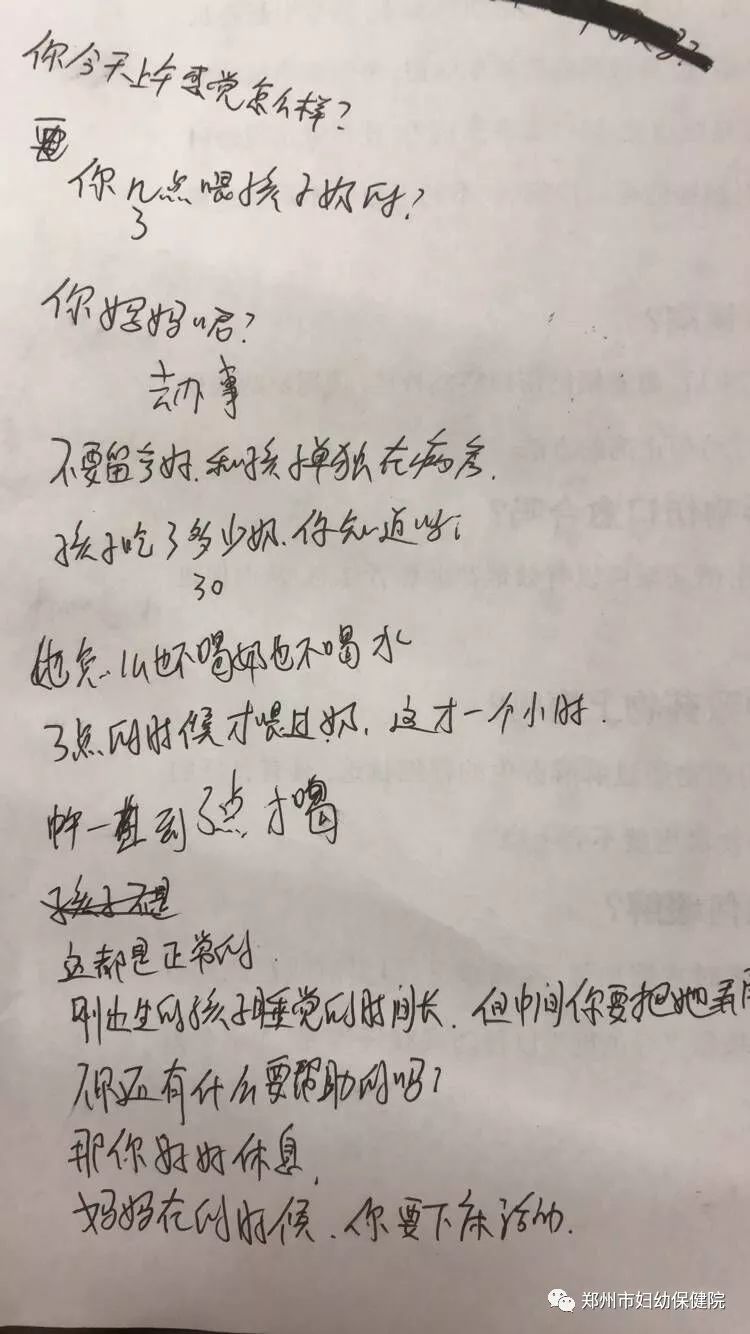 你今天上午感觉怎么样？
你几点喂孩子奶的？
3
你妈妈呢？
去办事
不要留你和孩子单独在病房.
孩子吃了多少奶.你知道吗？
30
她怎么也不喝奶也不喝水
3点的时候才喂过奶，这才一个小时.
一直到3点才喝
孩子不是
这都是正常的.
刚出生的孩子睡觉的时间长.但中间你要把她弄
你还有什么要帮助的吗？
那你好好休息,
妈妈在的时候.你要下床活动.
郑州市妇幼保健院